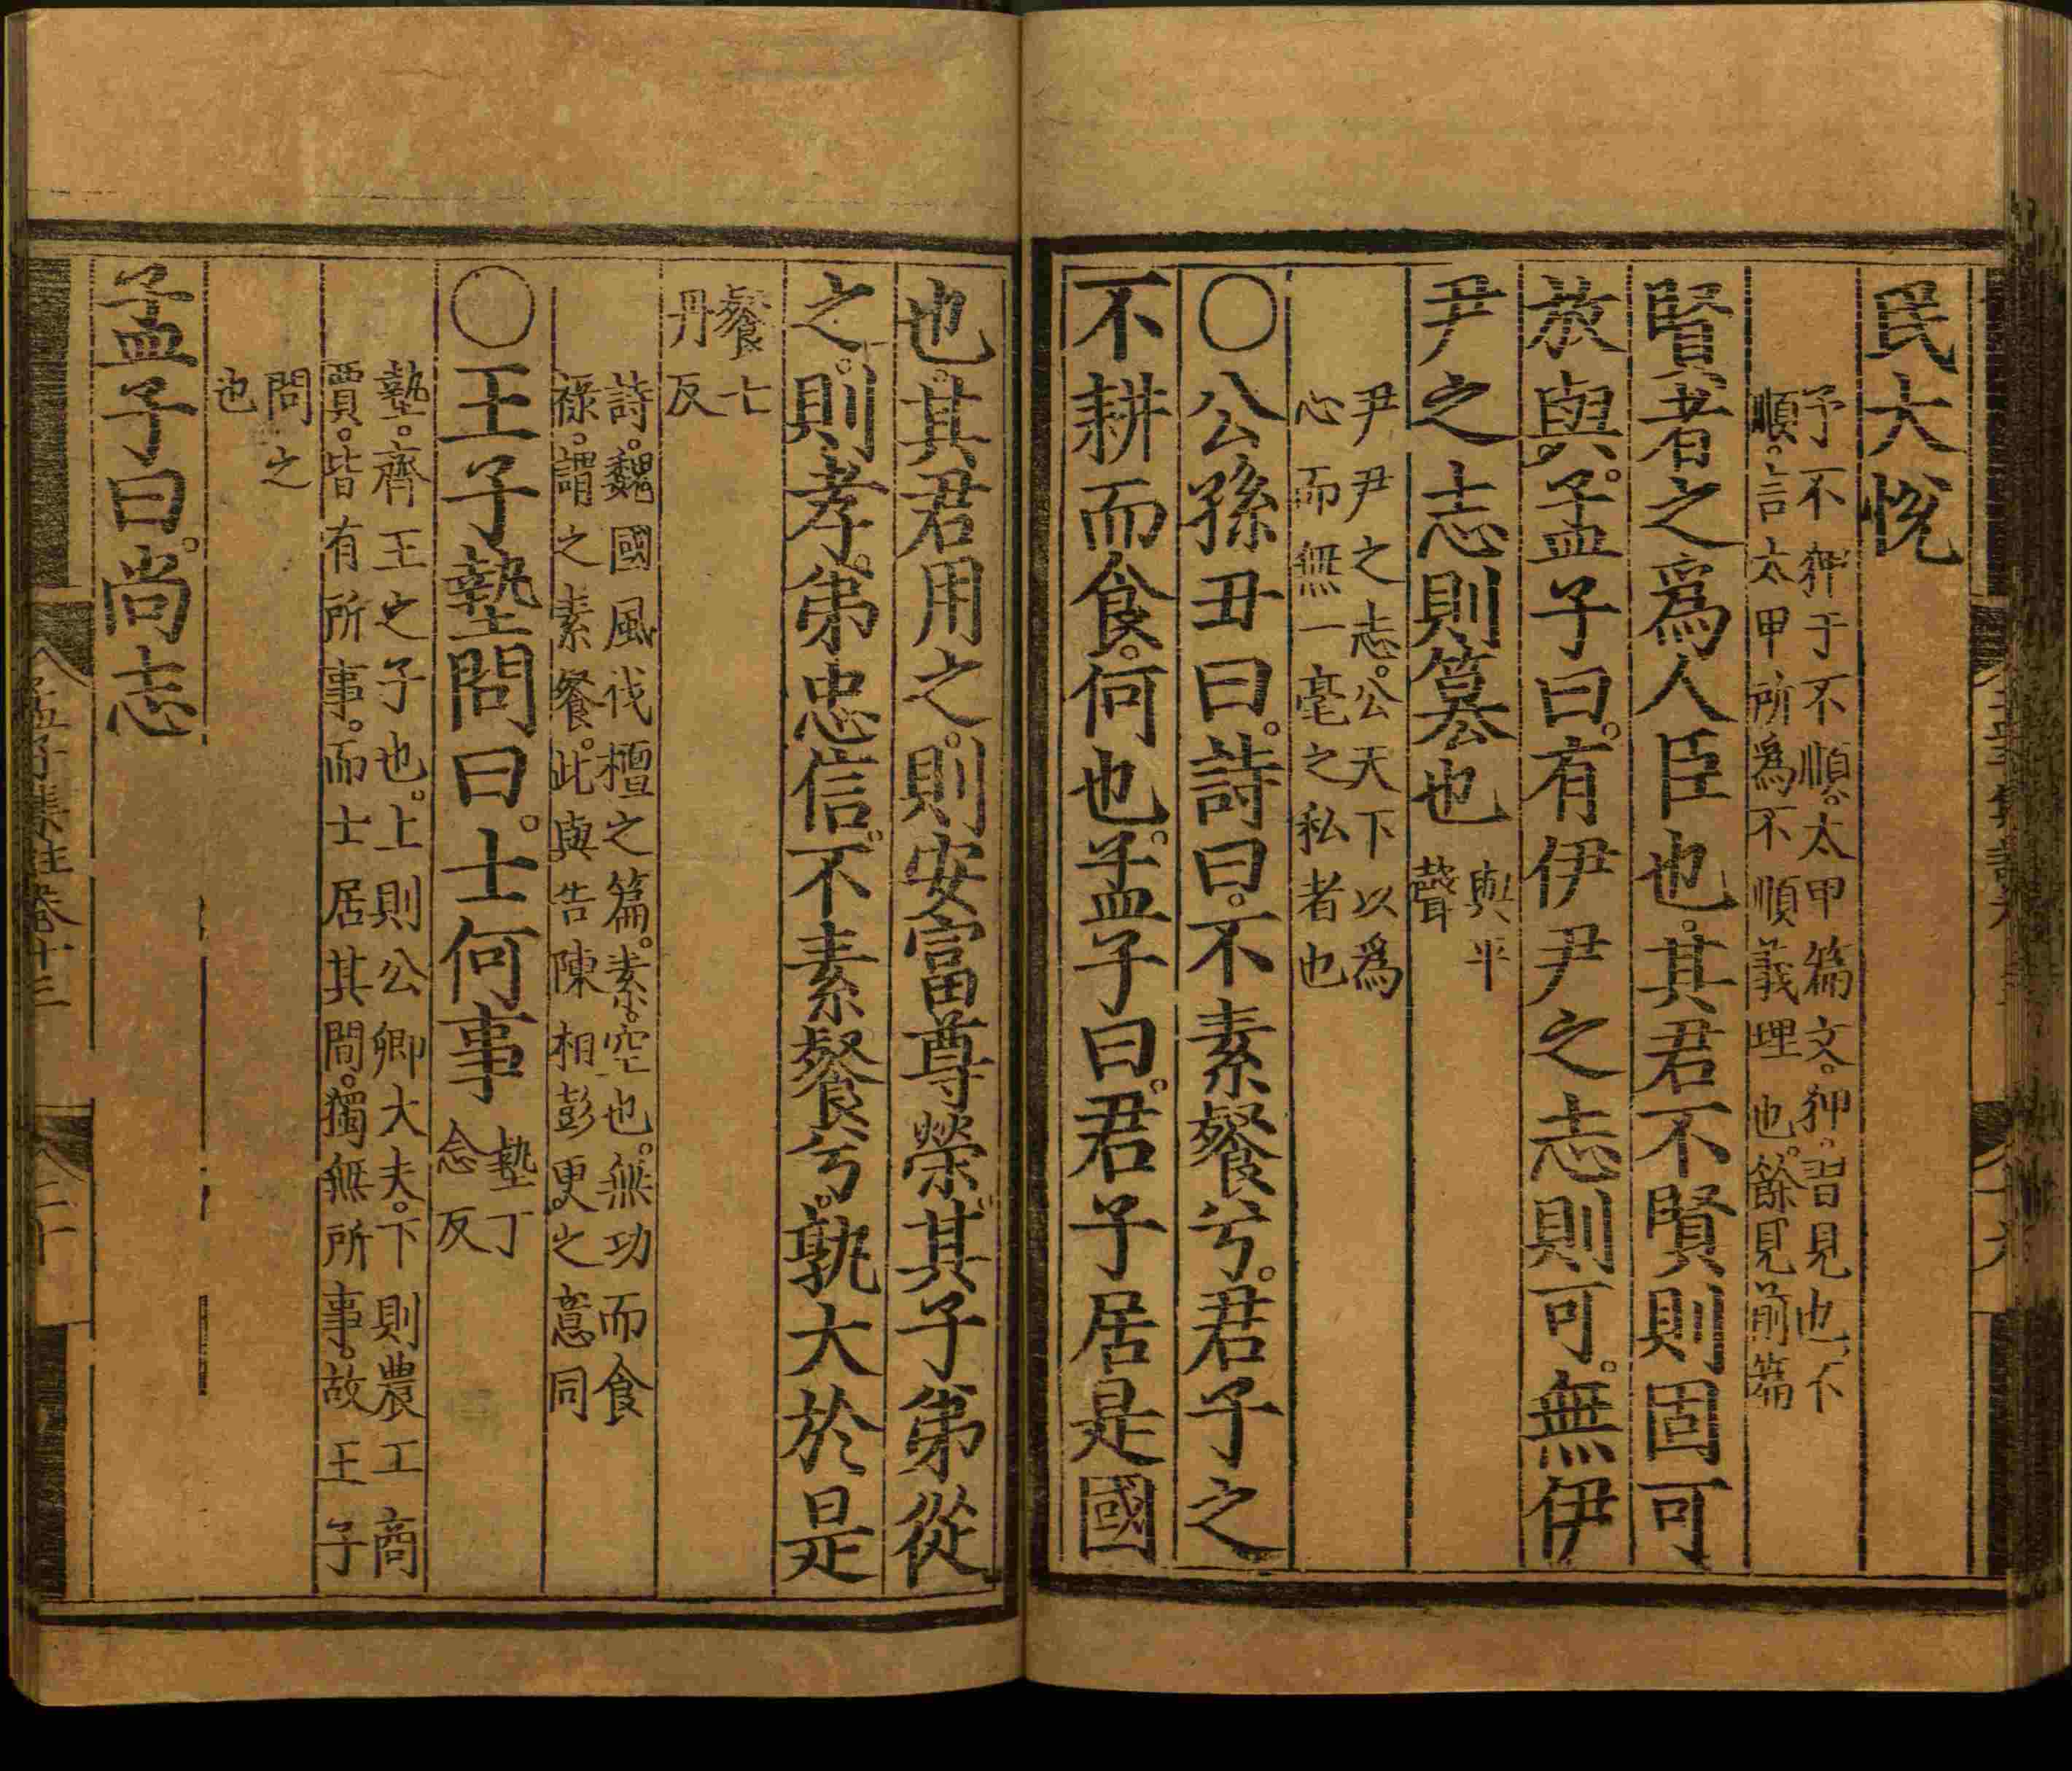 民大悅
予不狎于不順。太甲篇文。狎。習見也。不
順。言太甲所爲不順義理也。餘見前篇
賢者之爲人臣也。其君不賢則固可
放與。孟子曰。有伊尹之志則可。無伊
尹之志則篡也
與平
聲
尹尹之志。公天下以爲
心而無一毫之私者也
○公孫丑曰。詩曰。不素餐兮。君子之
不耕而食。何也。孟子曰。君子居是國
也。其君用之。則安富尊榮。其子弟從
之。則孝。弟忠信。不素餐兮。孰大於是
餐七
丹反
詩。魏國風伐檀之篇。素。空也。無功而食
祿。謂之素餐。此與告陳相彭更之意同
○王子墊問曰。士何事
墊丁
念反
墊。齊王之子也。上則公卿大夫。下則農工商
賈。皆有所事。而士居其間。獨無所事。故王子
問之
也
孟子曰。尚志
孟子集註卷十三
二十